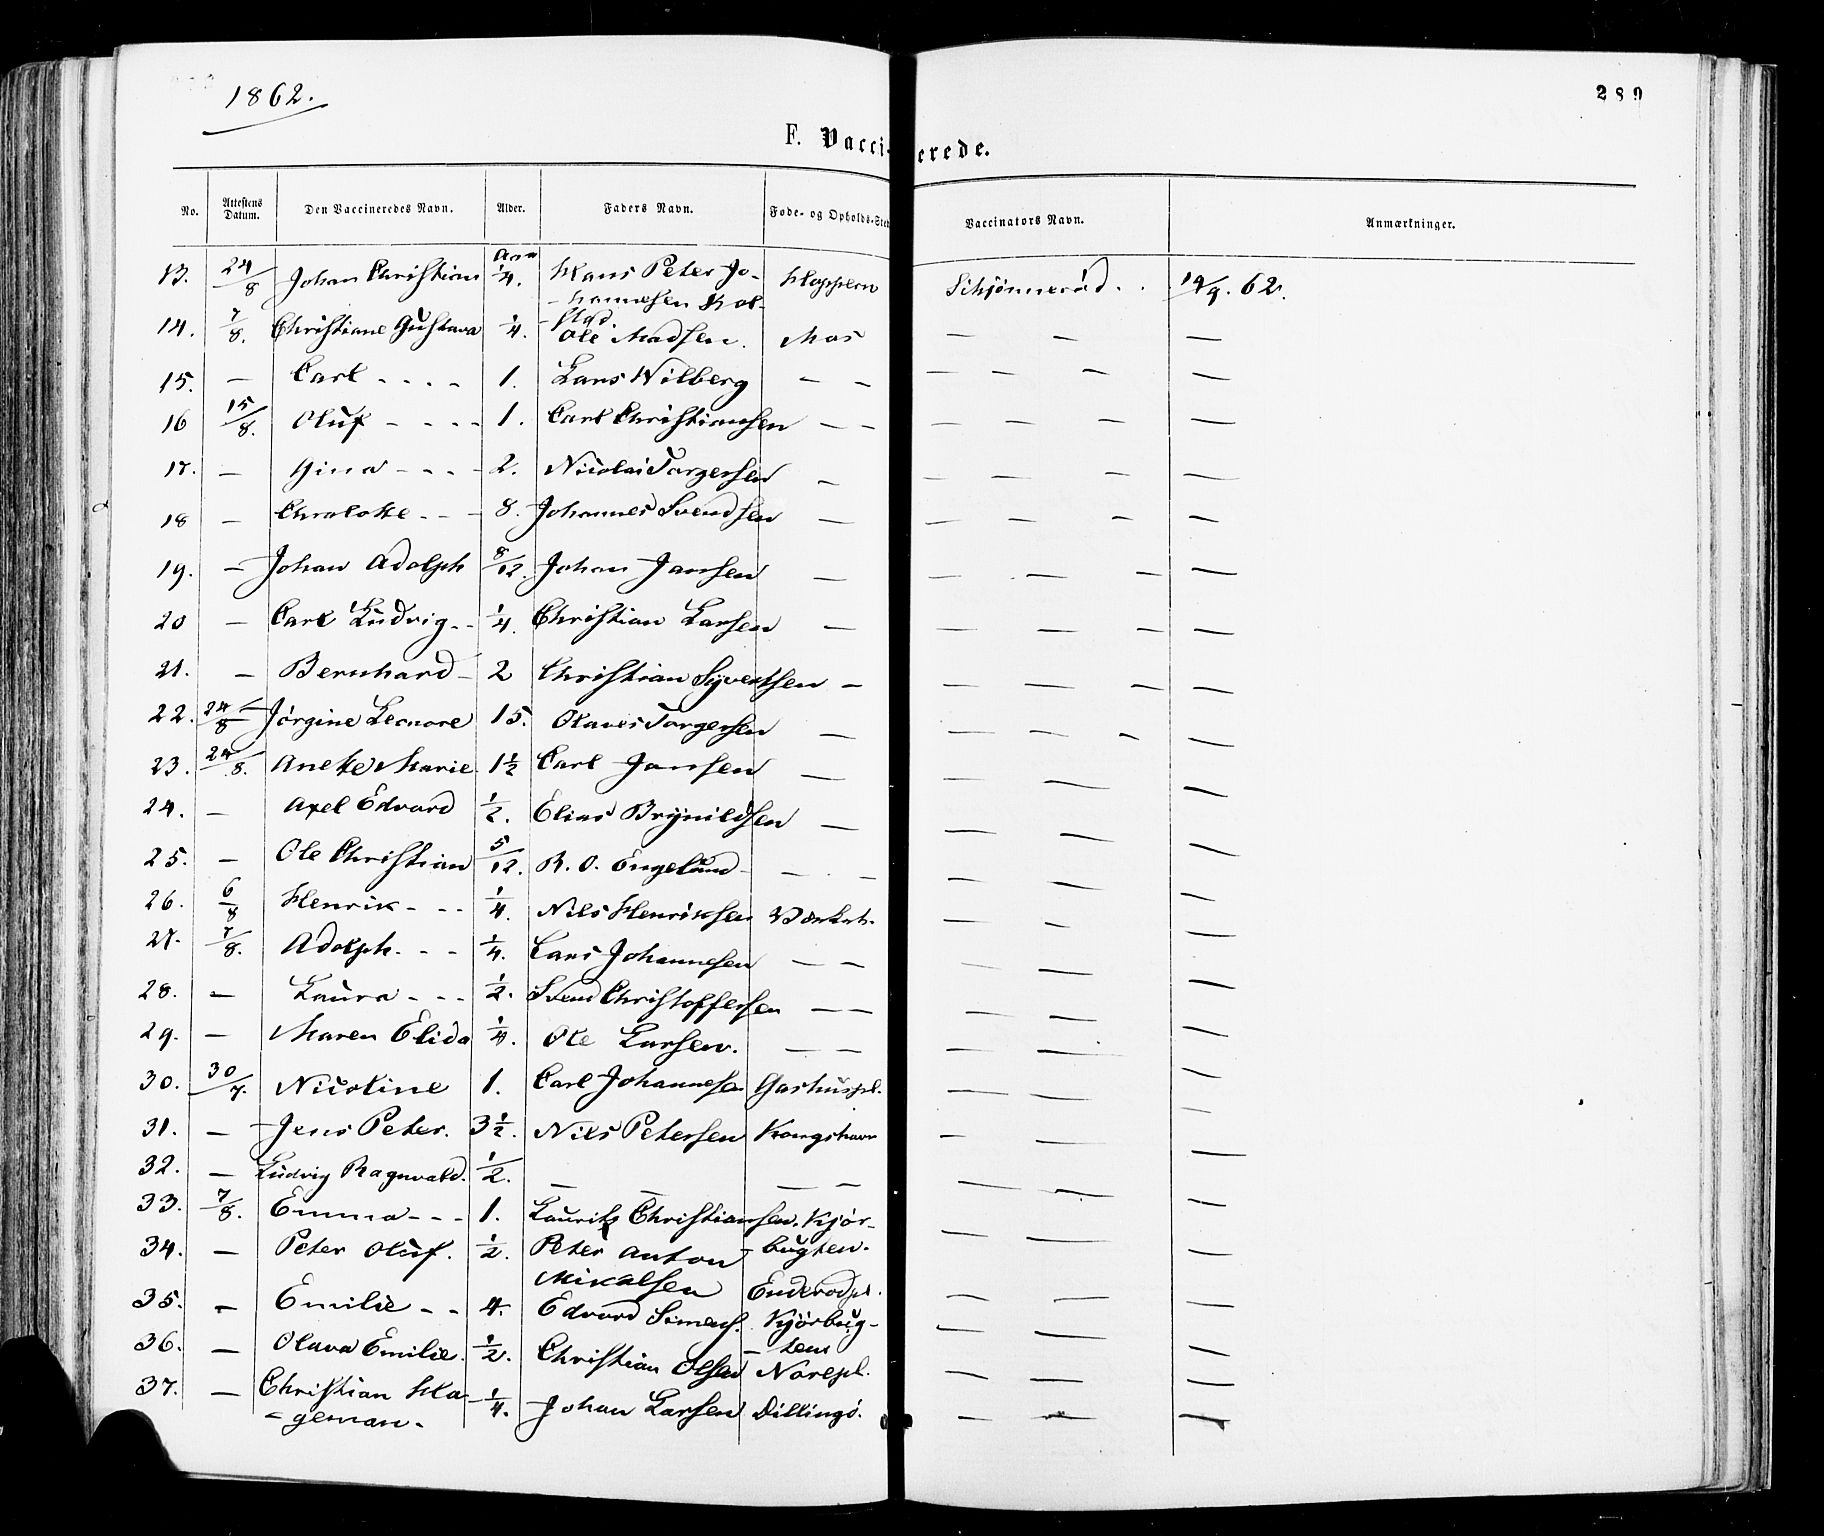 1862.
289
F. Vacci- erede.
No. Attestens Datum. Den Vaccineredes Navn. Alder. Faders Navn. Føde- og Opholds-Sted Vaccinators Navn. Anmærkninger.
13. 24/8 Johan Christian 1/4. Hans Peter Jo- Schjønnerød. . 19/9. 62.
- hannesen Kol-
- stad.
14. 7/8. Christiane Gustava 1/4. Ole Madsen. Mos — — —
15. — Carl - - - - 1. Lars Wilberg — — — — — —
16 15/8. Oluf - - - - 1. Carl Christiansen — — — — — —
17. — Gina - - - - 2. Nicolai Torgersen — — — — —
18 — - - - 8. Johannes Svendsen — — — — —
19. — Johan Adolph 8/12. Johan Jansen — — — — —
20 — Carl Ludvig - - 1/4. Christian Larsen — — — — —
21. — Bernhard - 2 Christian Syvertsen — — — — —
22. 24/8 Jørgine Leonore 15. Olaves Torgersen — — — — —
23. 24/8. Anette Marie 1 1/2 Carl Jansen — — — —
24. — Axel Edvard 1/2. Elias Brynildsen — — — —
25. — Ole Christian 5/12. R. O. Engelund — — — — —
26. 6/8 Henrik - - - 1/4. Nils Henriksen Værket. — — —
27. 7/8. Adolph. - - - 1/4. Lars Johannesen — — — — —
28. — Laura - - - 1/2. Svend Christoffersen — — — — —
29. — Maren Elida 1/4. Ole Larsen. — — — — —
30. 30/7. Nicoline 1. Carl Johannesen Gashuspl. — — —
31. — Jens Peter. 3 1/2. Nils Petersen Kongshavn — — —
32. — Ludvig Ragnvald. 1/2. — — — — — — —
33. 7/8. Emma - - - 1. Laurits Christiansen. Kjør- — — —
34. — Peter Oluf. 1/2. Peter Anton - bugten.
Mikalsen
35. — Emilie - - 4. Edvard Simens. Kjørbug- — — —
36. — Olava Emilie. 1/2. Christian Olsen Norepl. — — —
- ten
37. — Christian Ha- 1/4. Johan Larsen Dillingö. — — —
- geman.